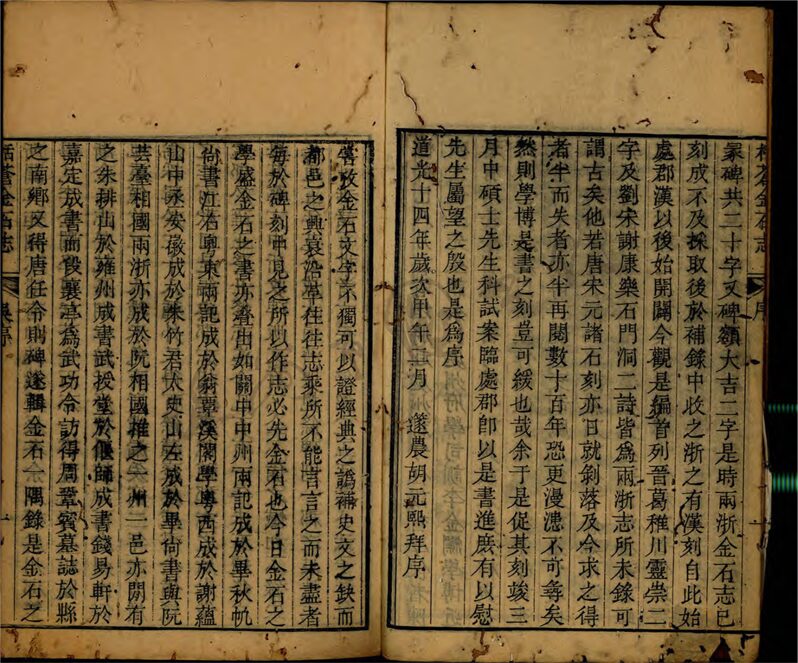 栝蒼金石志
序
冡碑共二十字又碑額大吉二字是時兩浙金石志已
刻成不及採取後於補錄中收之浙之有漢刻自此始
處郡漢以後始開闢今觀是編首列晉葛稚川靈崇二
字及劉宋謝康樂石門洞二詩皆爲兩浙志所未錄可
謂古矣他若唐宋元諸石刻亦日就剝落及今求之得
者半而失者亦半再閱數十百年恐更漫漶不可尋矣
然則學博是書之刻豈可緩也哉余于是促其刻竣三
月中碩士先生科試案臨處郡卽以是書進庶有以慰
先生屬望之殷也是爲序
道光十四年歲次甲午二月 遂農胡元熙拜序
嘗攷金石文字不獨可以證經典之譌補史文之缺而
都邑之興衰沿革往往志乘所不能言言之而未盡者
每於碑刻中見之所以作志必先金石也今日金石之
學盛金石之書亦叠出如關中中州兩記成於畢秋帆
尙書江右粵東兩記成於翁覃溪閣學粵西成於謝蘊
山中丞安徽成於朱竹君太史山左成於畢尙書與阮
芸臺相國兩浙亦成於阮相國推之一州一邑亦閒有
之朱排山於雍州成書武授堂於偃師成書錢易軒於
嘉定成書而段襄亭爲武功令訪得周鞏賓墓誌於縣
之南鄉又得唐任令則碑遂輯金石一隅錄是金石之
栝蒼金石志
吳序